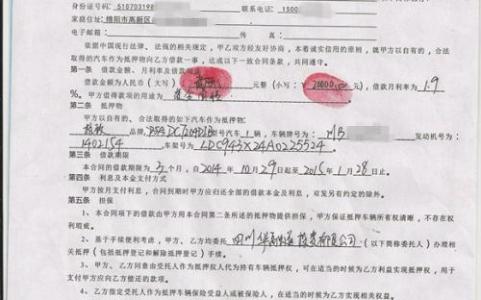 身份证号码：51070319 联系电话：1500
家庭住址：绵阳市高新区
电子邮箱： 传真：
依据中国现行法律、法规的相关规定，甲乙双方经友好协商，本着诚实信用的原则，就甲方以自有的、合法
取得的汽车作为抵押物向乙方借款一事，达成以下一致合同条款，共同遵守。
第一条 借款金额、月利率及借款用途
借款金额为人民币（大写） 元整（小写： ），借款月利率为1.9
%。甲方借得款项的用途为
第二条 抵押物
甲方以自有的、合法取得的如下汽车作为抵押物：
品牌， 型号汽车 1 辆，车辆牌号为： 川B 发动机号为：
1402154 车架号为 LDC943X24A0225524
第三条 借款期限
本合同的借款期限为 3 个月，自 2014 年 10 月 29 日起至 2015 年 1 月 28 日止。
第四条 利息及本金支付方式
甲方按月支付利息，合同到期时甲方应归还全部的借款本金及利息，双发另有约定的除外。
第五条 担保
1、本合同项下的借款由甲方用本合同第二条所述的抵押物提供担保，甲方保证抵押车辆所有权清晰，不存在权
利瑕疵。
2、基于手续便利考虑，甲方、乙方均委托 四川 投资有限公司（以下简称委托人）办理相
关抵押（包括抵押登记和解除抵押登记）手续。
3、甲方、乙方同意由受托人作为抵押权人代为持有车辆抵押权，可在适当的时候为乙方利益实现抵押权，用于
支付甲方应向乙方偿还的款项。
4、乙方指定受托人作为抵押车辆保险受益人或被保险人，在适当的时候为乙方利益实现相关权益。